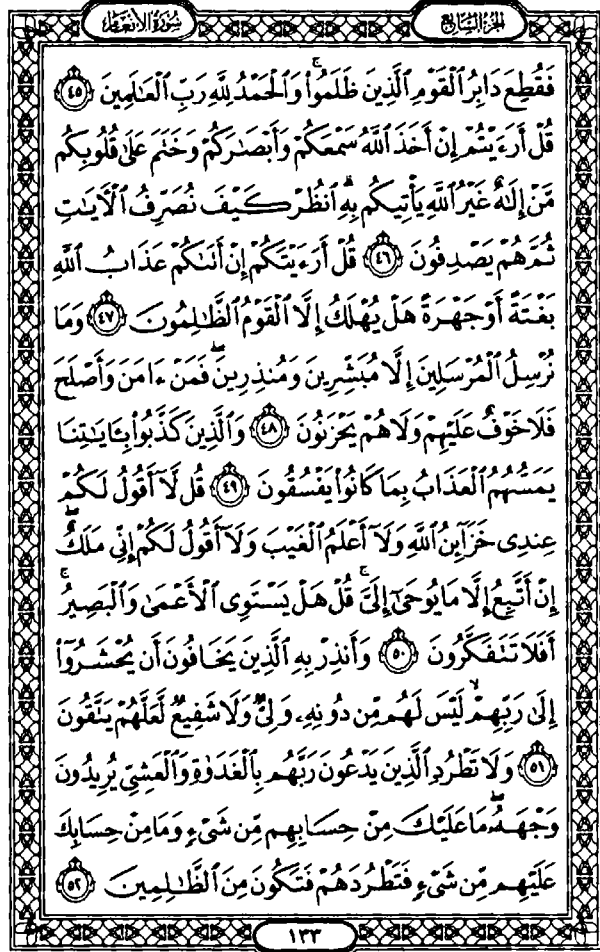 سورة الأنعام
الجزء السابع
فَقُطِعَ دَابِرُ ٱلْقَوْمِ ٱلَّذِينَ ظَلَمُوا۟ ۚ وَٱلْحَمْدُ لِلَّهِ رَبِّ ٱلْعَـٰلَمِينَ ٤٥
قُلْ أَرَءَيْتُمْ إِنْ أَخَذَ ٱللَّهُ سَمْعَكُمْ وَأَبْصَـٰرَكُمْ وَخَتَمَ عَلَىٰ قُلُوبِكُم
مَّنْ إِلَـٰهٌ غَيْرُ ٱللَّهِ يَأْتِيكُم بِهِ ۗ ٱنظُرْ كَيْفَ نُصَرِّفُ ٱلْـَٔايَـٰتِ
ثُمَّ هُمْ يَصْدِفُونَ ٤٦ قُلْ أَرَءَيْتَكُمْ إِنْ أَتَىٰكُمْ عَذَابُ ٱللَّهِ
بَغْتَةً أَوْ جَهْرَةً هَلْ يُهْلَكُ إِلَّا ٱلْقَوْمُ ٱلظَّـٰلِمُونَ ٤٧ وَمَا
نُرْسِلُ ٱلْمُرْسَلِينَ إِلَّا مُبَشِّرِينَ وَمُنذِرِينَ ۖ فَمَنْ ءَامَنَ وَأَصْلَحَ
فَلَا خَوْفٌ عَلَيْهِمْ وَلَا هُمْ يَحْزَنُونَ ٤٨ وَٱلَّذِينَ كَذَّبُوا۟ بِـَٔايَـٰتِنَا
يَمَسُّهُمُ ٱلْعَذَابُ بِمَا كَانُوا۟ يَفْسُقُونَ ٤٩ قُل لَّآ أَقُولُ لَكُمْ
عِندِى خَزَآئِنُ ٱللَّهِ وَلَآ أَعْلَمُ ٱلْغَيْبَ وَلَآ أَقُولُ لَكُمْ إِنِّى مَلَكٌ ۖ
إِنْ أَتَّبِعُ إِلَّا مَا يُوحَىٰٓ إِلَىَّ ۚ قُلْ هَلْ يَسْتَوِى ٱلْأَعْمَىٰ وَٱلْبَصِيرُ ۚ
أَفَلَا تَتَفَكَّرُونَ ٥٠ وَأَنذِرْ بِهِ ٱلَّذِينَ يَخَافُونَ أَن يُحْشَرُوٓا۟
إِلَىٰ رَبِّهِمْ ۙ لَيْسَ لَهُم مِّن دُونِهِۦ وَلِىٌّ وَلَا شَفِيعٌ لَّعَلَّهُمْ يَتَّقُونَ
٥١ وَلَا تَطْرُدِ ٱلَّذِينَ يَدْعُونَ رَبَّهُم بِٱلْغَدَوٰةِ وَٱلْعَشِىِّ يُرِيدُونَ
وَجْهَهُۥ ۖ مَا عَلَيْكَ مِنْ حِسَابِهِم مِّن شَىْءٍ وَمَا مِنْ حِسَابِكَ
عَلَيْهِم مِّن شَىْءٍ فَتَطْرُدَهُمْ فَتَكُونَ مِنَ ٱلظَّـٰلِمِينَ ٥٢
١٣٣